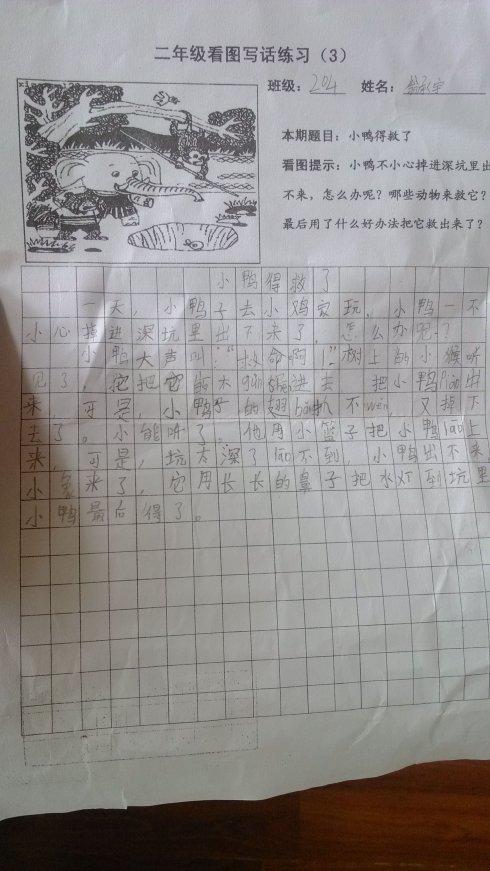 二年级看图写话练习（3）
班级：204 姓名：
本期题目：小鸭得救了
看图提示：小鸭不小心掉进深坑里出
不来，怎么办呢？哪些动物来救它？
最后用了什么好办法把它救出来了？
小鸭得救了
一天，小鸭子去小鸡家玩，小鸭一不
小心掉进深坑里出不来了，怎么办呢？
小鸭大声叫：“救命啊！”树上的小猴听
见了，它把 进去，把小鸭 出
来，可是，小鸭子的翅bǎng 不wěn，又掉下
去了。小能听了，他用小篮子把小鸭lāo上
来，可是，坑太深了lāo不到，小鸭出不来
小象来了，它用长长的鼻子把水灯到坑里
小鸭最后得了。